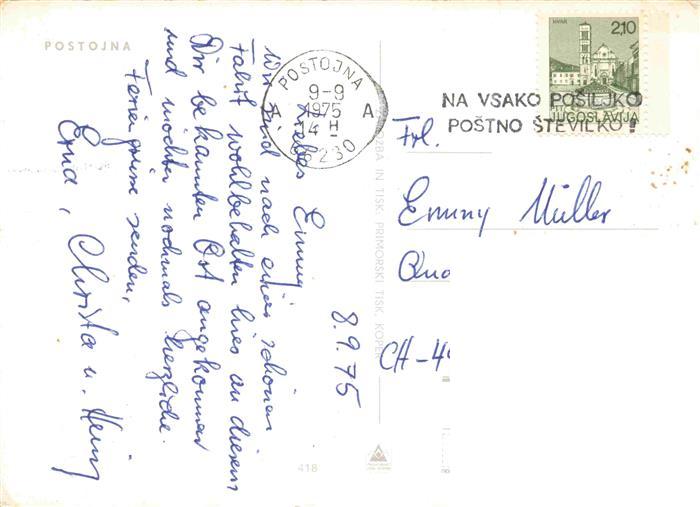 POSTOJNA
8.9.75
Liebes Emmy
wir sind nach einer schönen
Fahrt wohlbehalten hier an diesem
Dir bekannten Ort angekommen
und möchten nochmals herzliche
Feriengrüsse senden,
Erna, Christa u. Heinz
418
ZBA IN TISK: PRIMORSKI TISK, KOPER
POSTOJNA
9-9
1975
14 H
A A
66230
NA VSAKO POŠILJKO
POŠTNO ŠTEVILKO!
HVAR
2,10
JUGOSLAVIJA
Frl.
Emmy Müller
CH-4